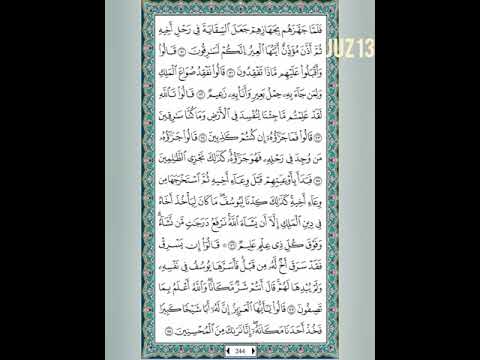 JUZ 13
فَلَمَّا جَهَّزَهُم بِجَهَازِهِمْ جَعَلَ ٱلسِّقَايَةَ فِى رَحْلِ أَخِيهِ
ثُمَّ أَذَّنَ مُؤَذِّنٌ أَيَّتُهَا ٱلْعِيرُ إِنَّكُمْ لَسَٰرِقُونَ ٧٠ قَالُوا۟
وَأَقْبَلُوا۟ عَلَيْهِم مَّاذَا تَفْقِدُونَ ٧١ قَالُوا۟ نَفْقِدُ صُوَاعَ ٱلْمَلِكِ
وَلِمَن جَآءَ بِهِۦ حِمْلُ بَعِيرٍ وَأَنَا۠ بِهِۦ زَعِيمٌ ٧٢ قَالُوا۟ تَٱللَّهِ
لَقَدْ عَلِمْتُم مَّا جِئْنَا لِنُفْسِدَ فِى ٱلْأَرْضِ وَمَا كُنَّا سَٰرِقِينَ
٧٣ قَالُوا۟ فَمَا جَزَٰٓؤُهُۥٓ إِن كُنتُمْ كَٰذِبِينَ ٧٤ قَالُوا۟ جَزَٰٓؤُهُۥ
مَن وُجِدَ فِى رَحْلِهِۦ فَهُوَ جَزَٰٓؤُهُۥ كَذَٰلِكَ نَجْزِى ٱلظَّٰلِمِينَ
٧٥ فَبَدَأَ بِأَوْعِيَتِهِمْ قَبْلَ وِعَآءِ أَخِيهِ ثُمَّ ٱسْتَخْرَجَهَا مِن
وِعَآءِ أَخِيهِ كَذَٰلِكَ كِدْنَا لِيُوسُفَ مَا كَانَ لِيَأْخُذَ أَخَاهُ
فِى دِينِ ٱلْمَلِكِ إِلَّآ أَن يَشَآءَ ٱللَّهُ نَرْفَعُ دَرَجَٰتٍ مَّن نَّشَآءُ
وَفَوْقَ كُلِّ ذِى عِلْمٍ عَلِيمٌ ٧٦ قَالُوٓا۟ إِن يَسْرِقْ
فَقَدْ سَرَقَ أَخٌ لَّهُۥ مِن قَبْلُ فَأَسَرَّهَا يُوسُفُ فِى نَفْسِهِۦ
وَلَمْ يُبْدِهَا لَهُمْ قَالَ أَنتُمْ شَرٌّ مَّكَانًا وَٱللَّهُ أَعْلَمُ بِمَا
تَصِفُونَ ٧٧ قَالُوا۟ يَٰٓأَيُّهَا ٱلْعَزِيزُ إِنَّ لَهُۥٓ أَبًا شَيْخًا كَبِيرًا
فَخُذْ أَحَدَنَا مَكَانَهُۥٓ إِنَّا نَرَىٰكَ مِنَ ٱلْمُحْسِنِينَ ٧٨
244